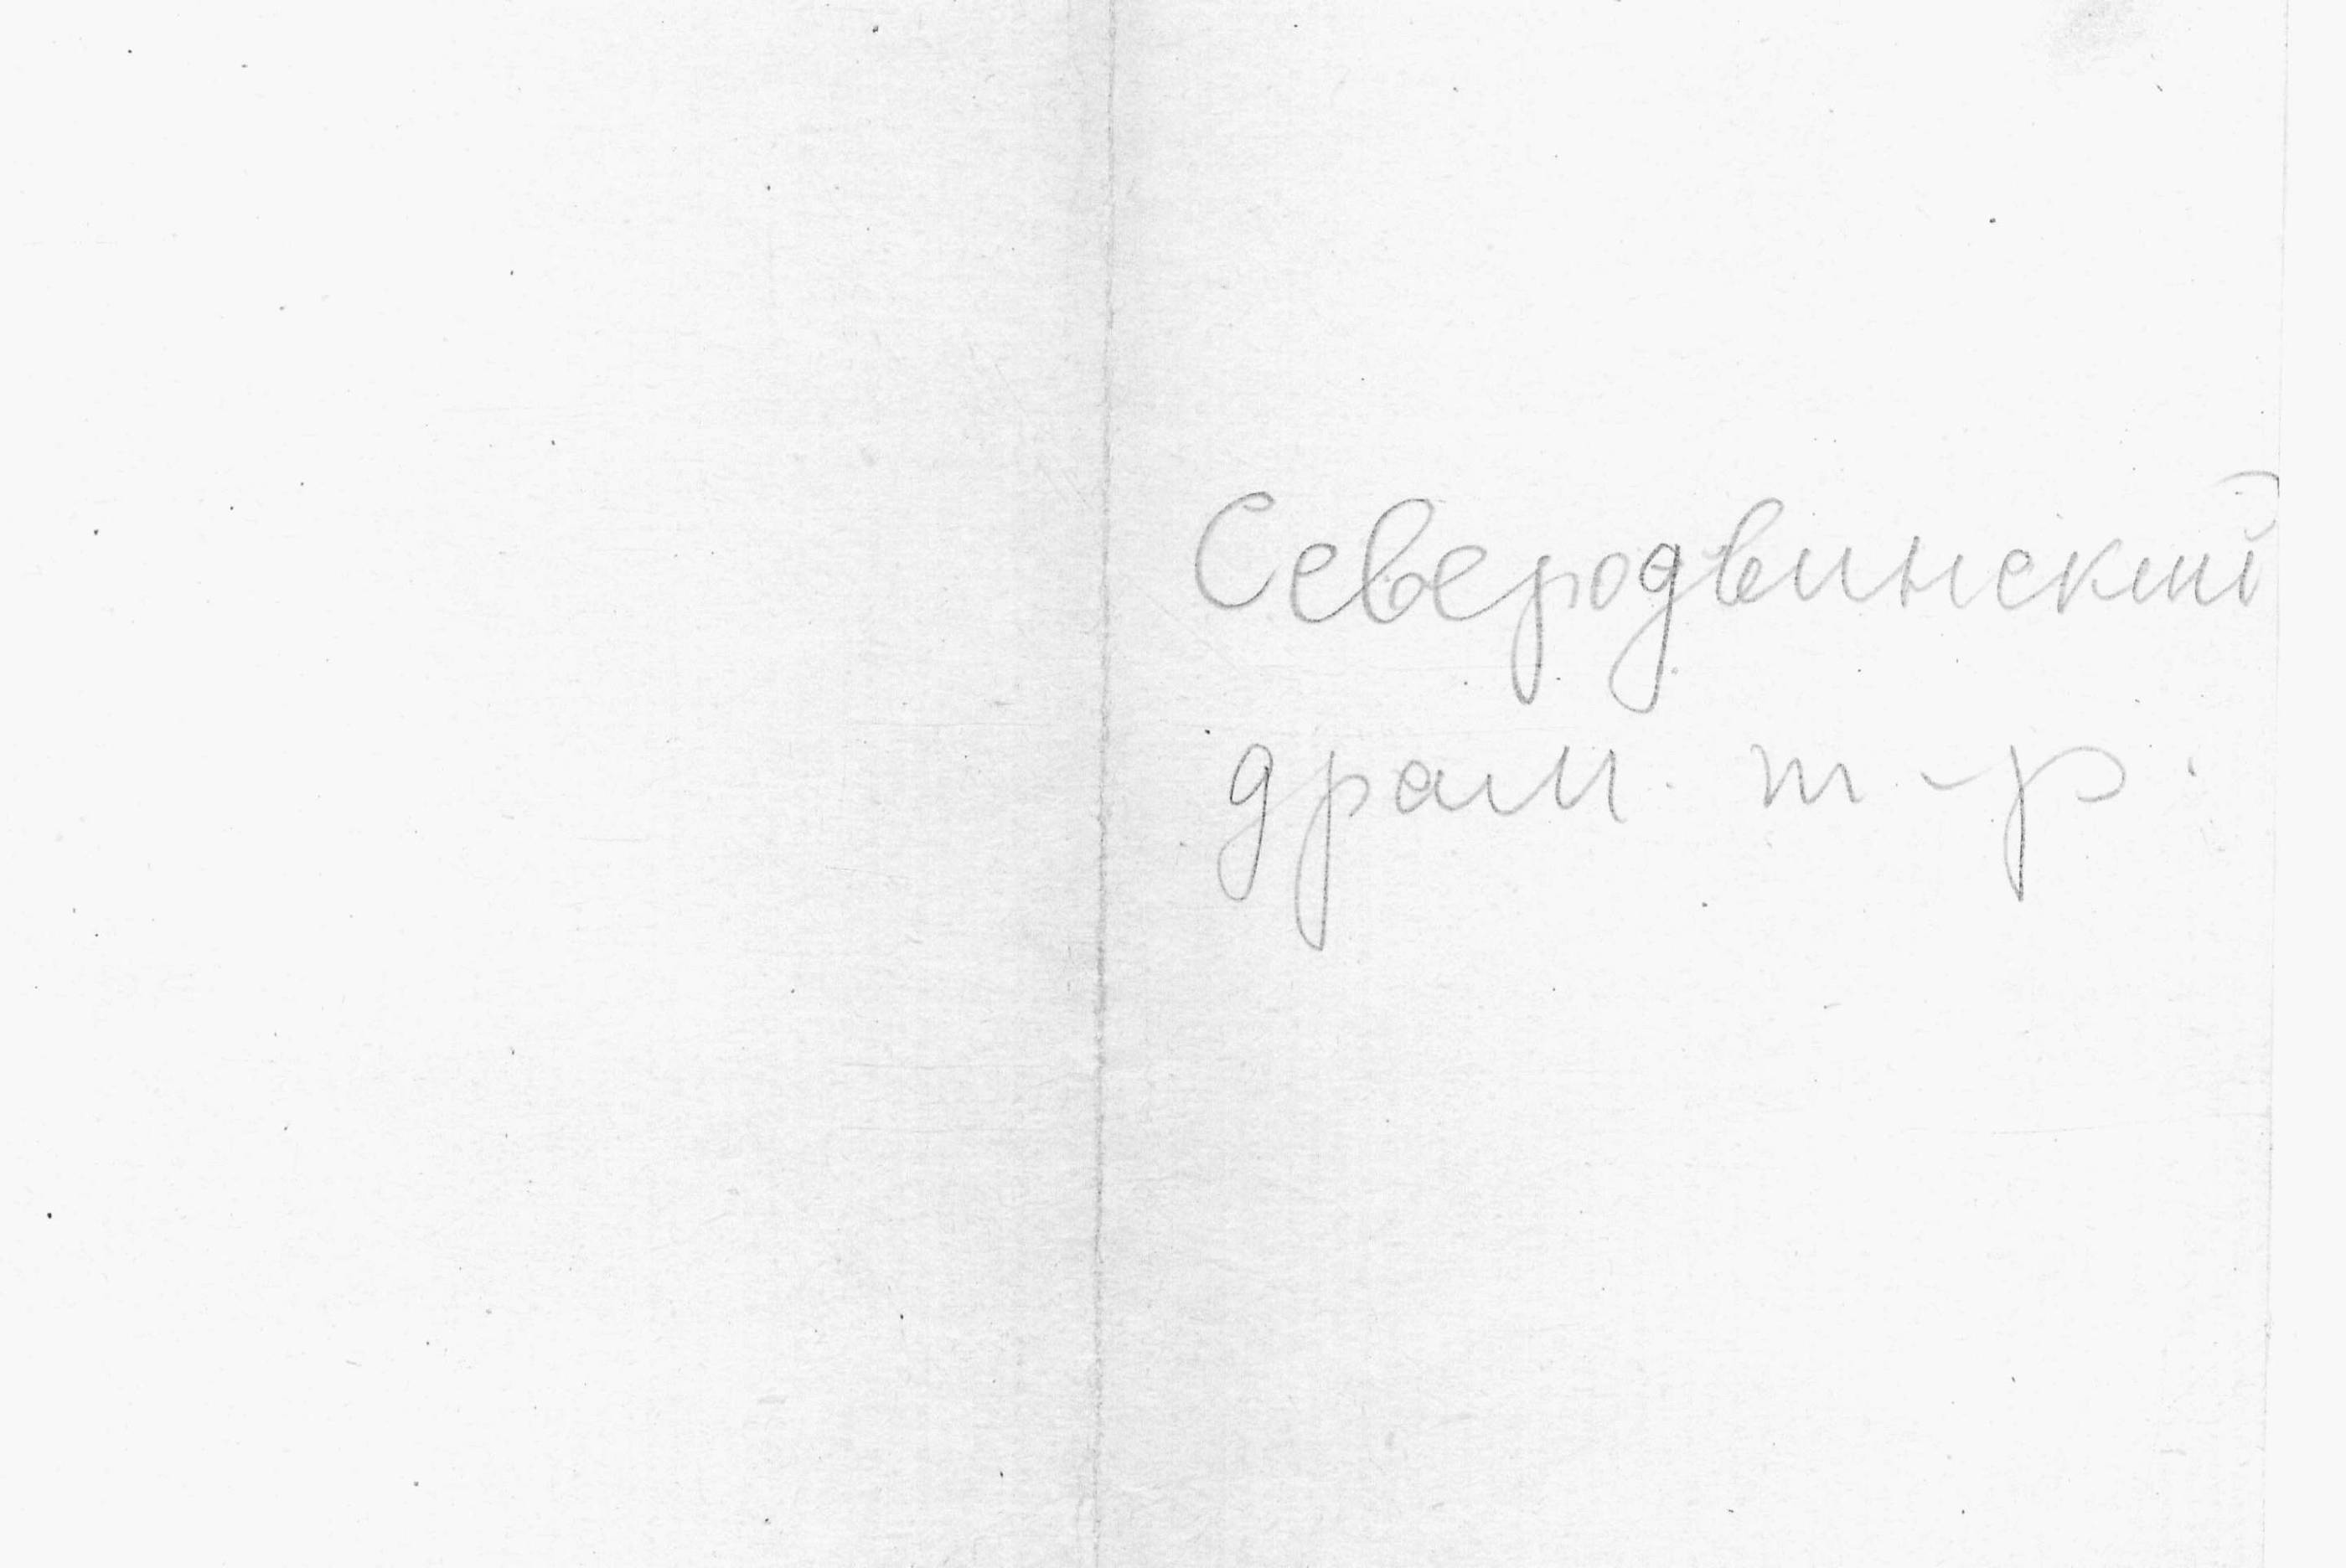 Северодвинский
драм. т-р.